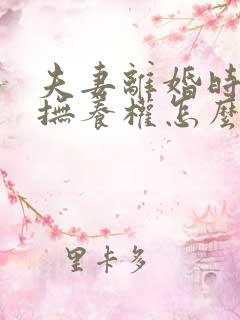 夫妻離婚時
撫養權怎麼
里卡多